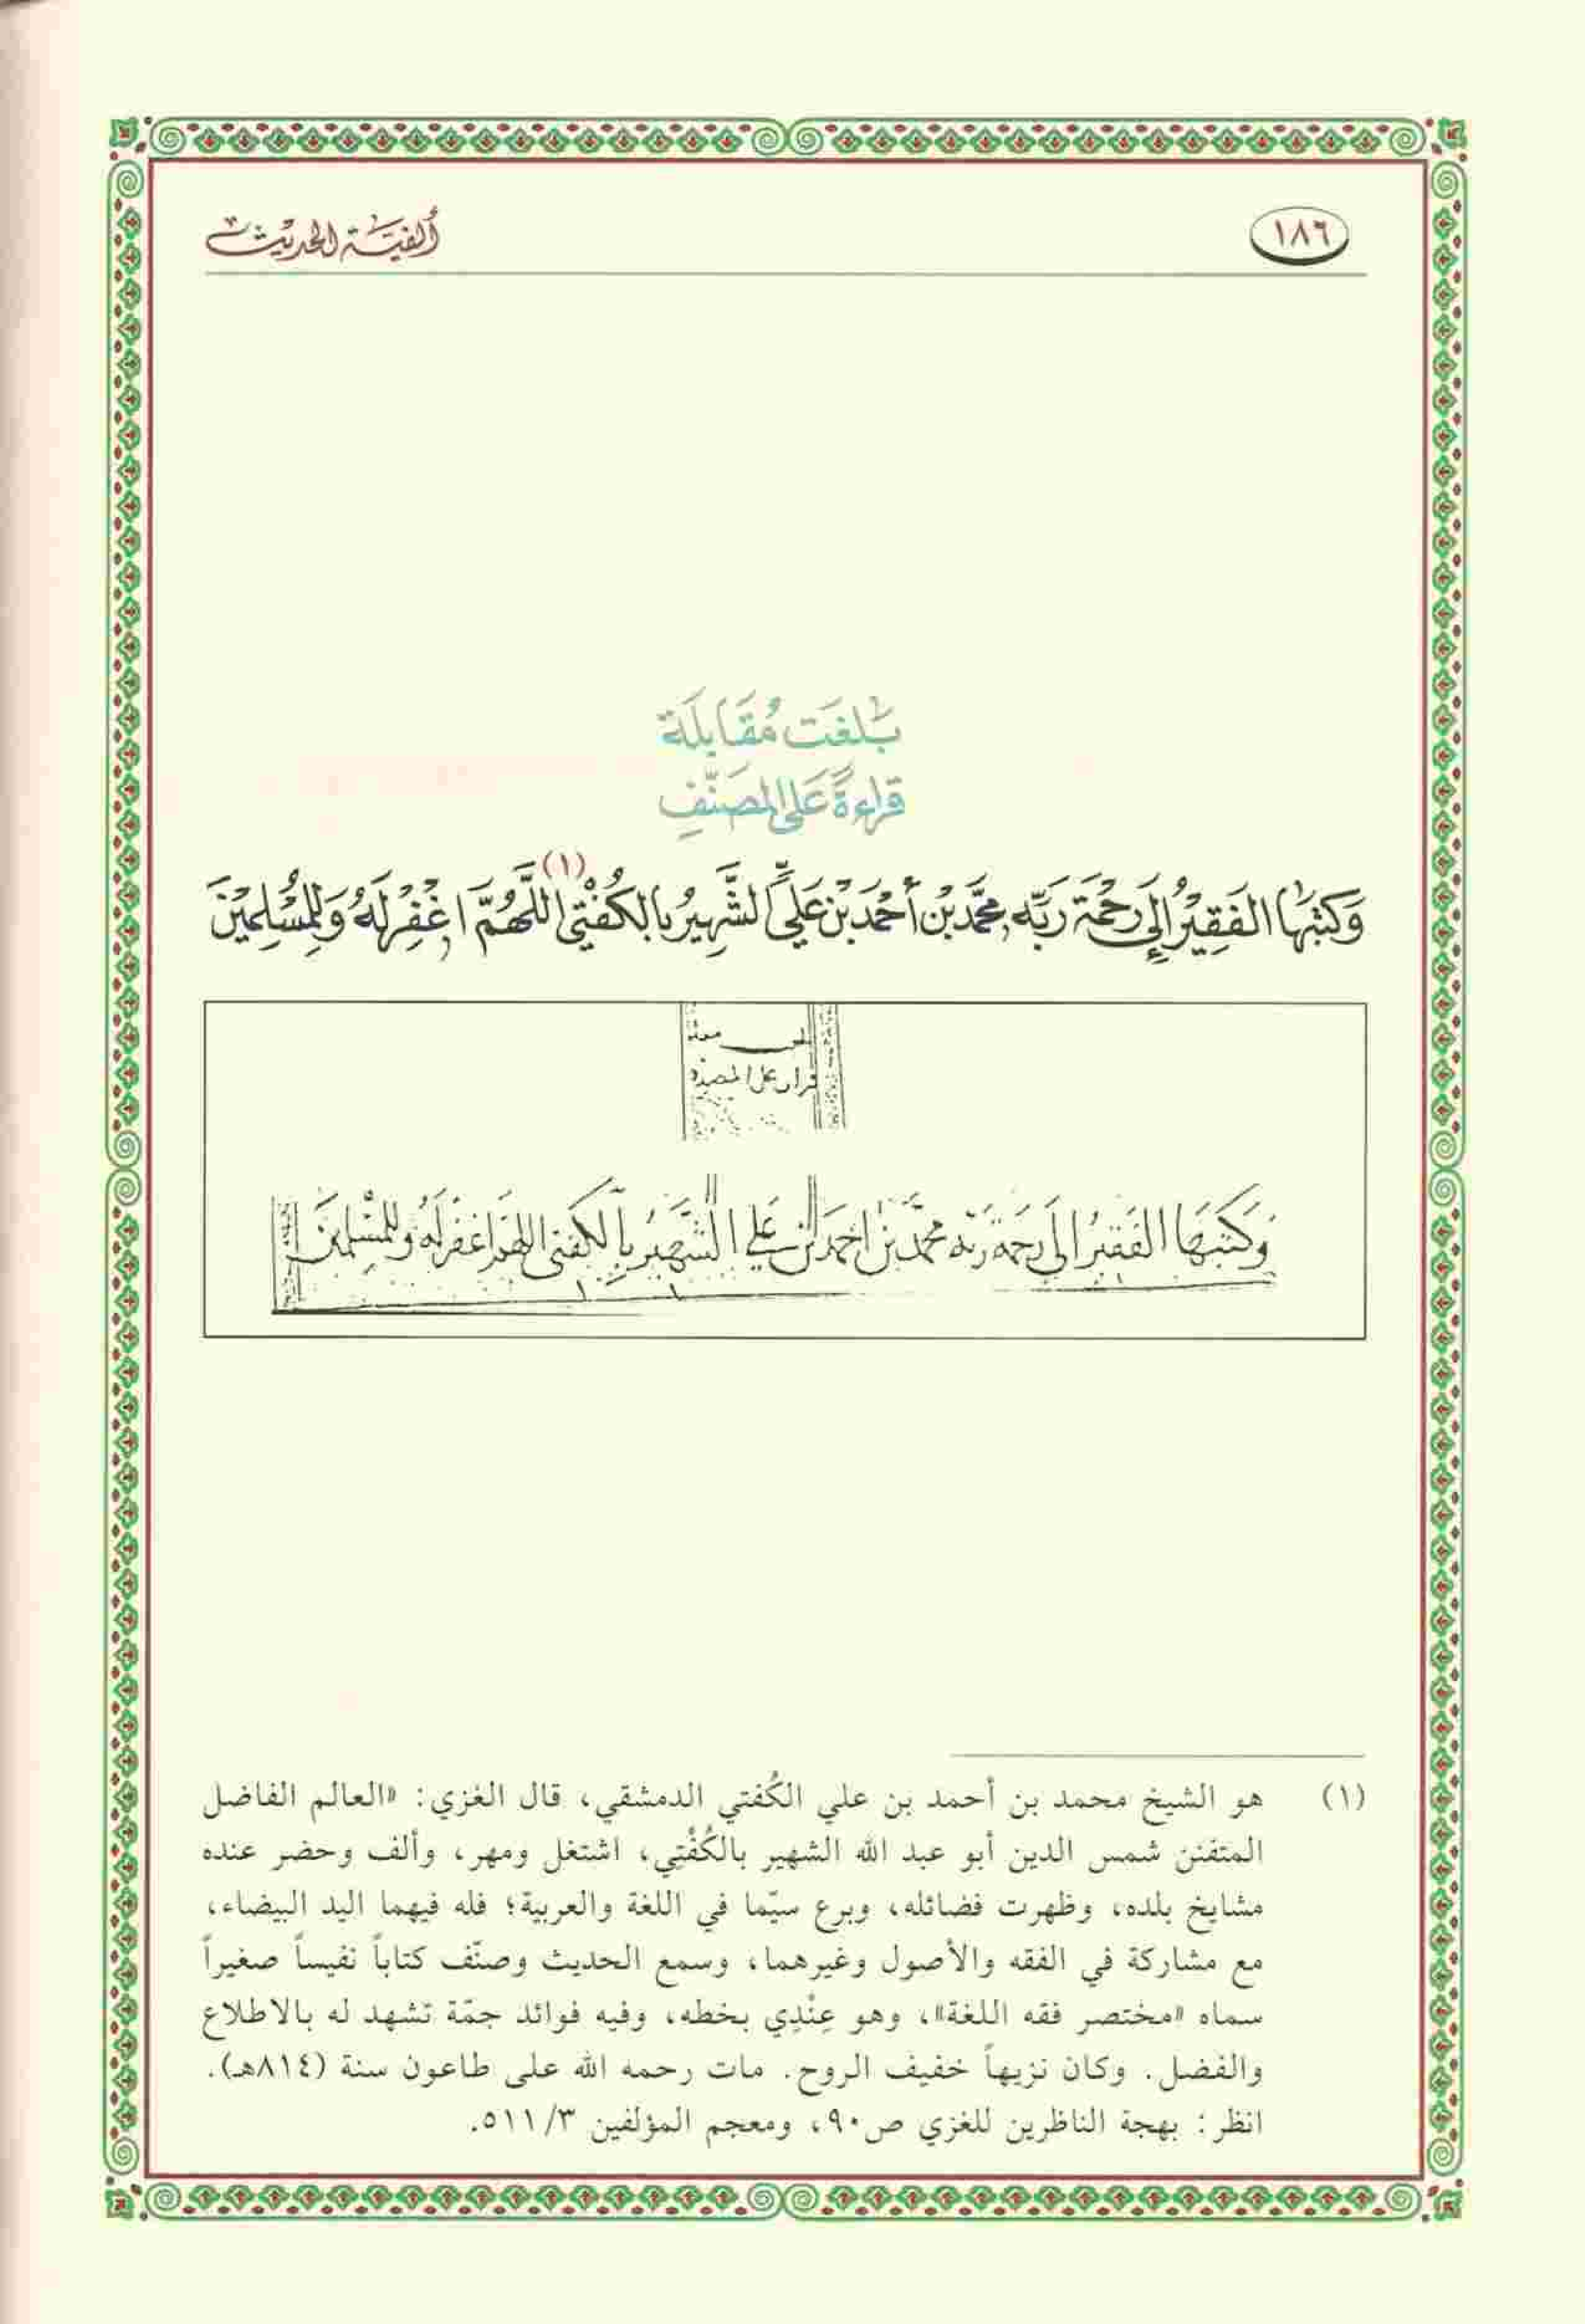 ١٨٦
ألفية الحديث
بَلَغَت مُقَابلَة
قراءةً عَلى المصَنِّفِ
وَكتبَهَا الفَقِيْرُ إلَى رَحْمَة رَبِّه محمَّد بْن أَحْمَد بْن عَليٍّ الشَّهِيرُ بالكُفْتي (١) اللَّهُمَّ اغْفِرْ لَهُ وَلِلمُسْلِميْنَ
قراه على المصنف
وَكَتبَهَا الفَقيرُ الى رَحمَة رَبه محمَّد بن احمَد بن عَلي الشَّهيرُ بالكفتي اللهم اغفر لَهُ وللمسْلمينَ
(١) هو الشيخ محمد بن أحمد بن علي الكُفتي الدمشقي، قال الغزي: «العالم الفاضل
المتفنن شمس الدين أبو عبد الله الشهير بالكُفْتِي، اشتغل ومهر، وألف وحضر عنده
مشايخ بلده، وظهرت فضائله، وبرع سيّما في اللغة والعربية؛ فله فيهما اليد البيضاء،
مع مشاركة في الفقه والأصول وغيرهما، وسمع الحديث وصنّف كتاباً نفيساً صغيراً
سماه «مختصر فقه اللغة»، وهو عِنْدِي بخطه، وفيه فوائد جمّة تشهد له بالاطلاع
والفضل. وكان نزيهاً خفيف الروح. مات رحمه الله على طاعون سنة (٨١٤هـ).
انظر: بهجة الناظرين للغزي ص٩٠، ومعجم المؤلفين ٥١١/٣.